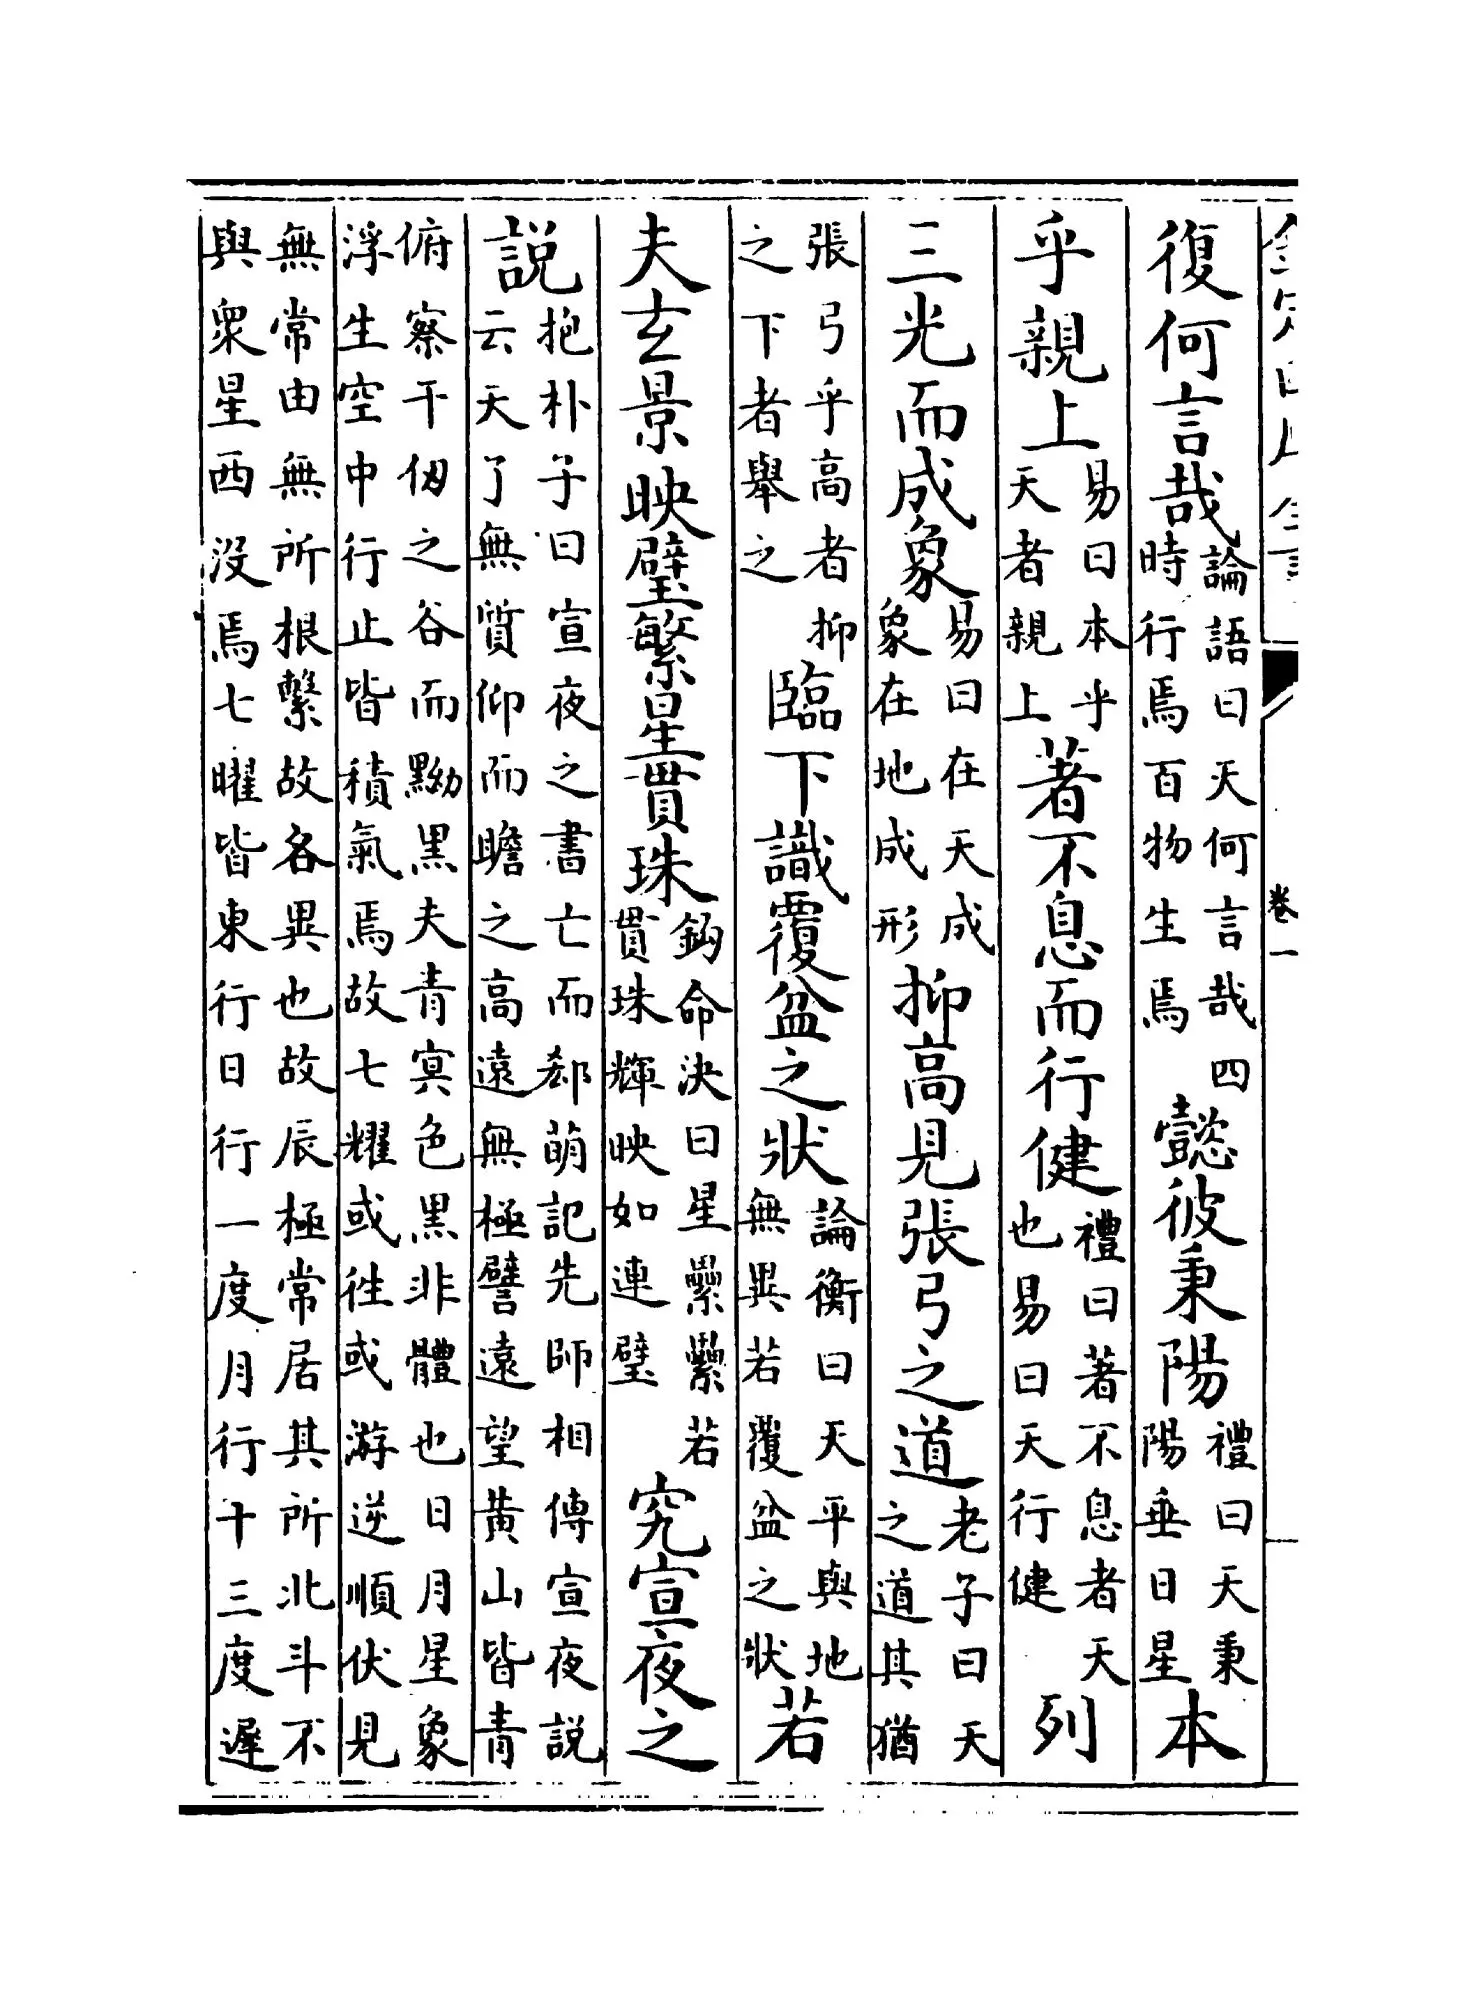 欽定四庫全書 卷一
復何言哉論語曰天何言哉四時行焉百物生焉懿彼秉陽禮曰天秉陽垂日星本
乎親上易曰本乎天者親上著不息而行健禮曰著不息者天也易曰天行健列
三光而成象易曰在天成象在地成形抑高見張弓之道老子曰天之道其猶
張弓乎高者抑之下者舉之臨下識覆盆之狀論衡曰天平與地無異若覆盆之狀若
夫玄景映璧繁星貫珠鈎命決曰星纍纍若貫珠輝映如連璧究宣夜之
説抱朴子曰宣夜之書亡而郄萌記先師相傳宣夜説云天了無質仰而瞻之高遠無極譬遠望黃山皆青
俯察千仞之谷而黝黑夫青冥色黑非體也日月星象浮生空中行止皆積氣焉故七耀或徃或游逆順伏見
無常由無所根繫故各異也故辰極常居其所北斗不與衆星西没焉七曜皆東行日行一度月行十三度遲